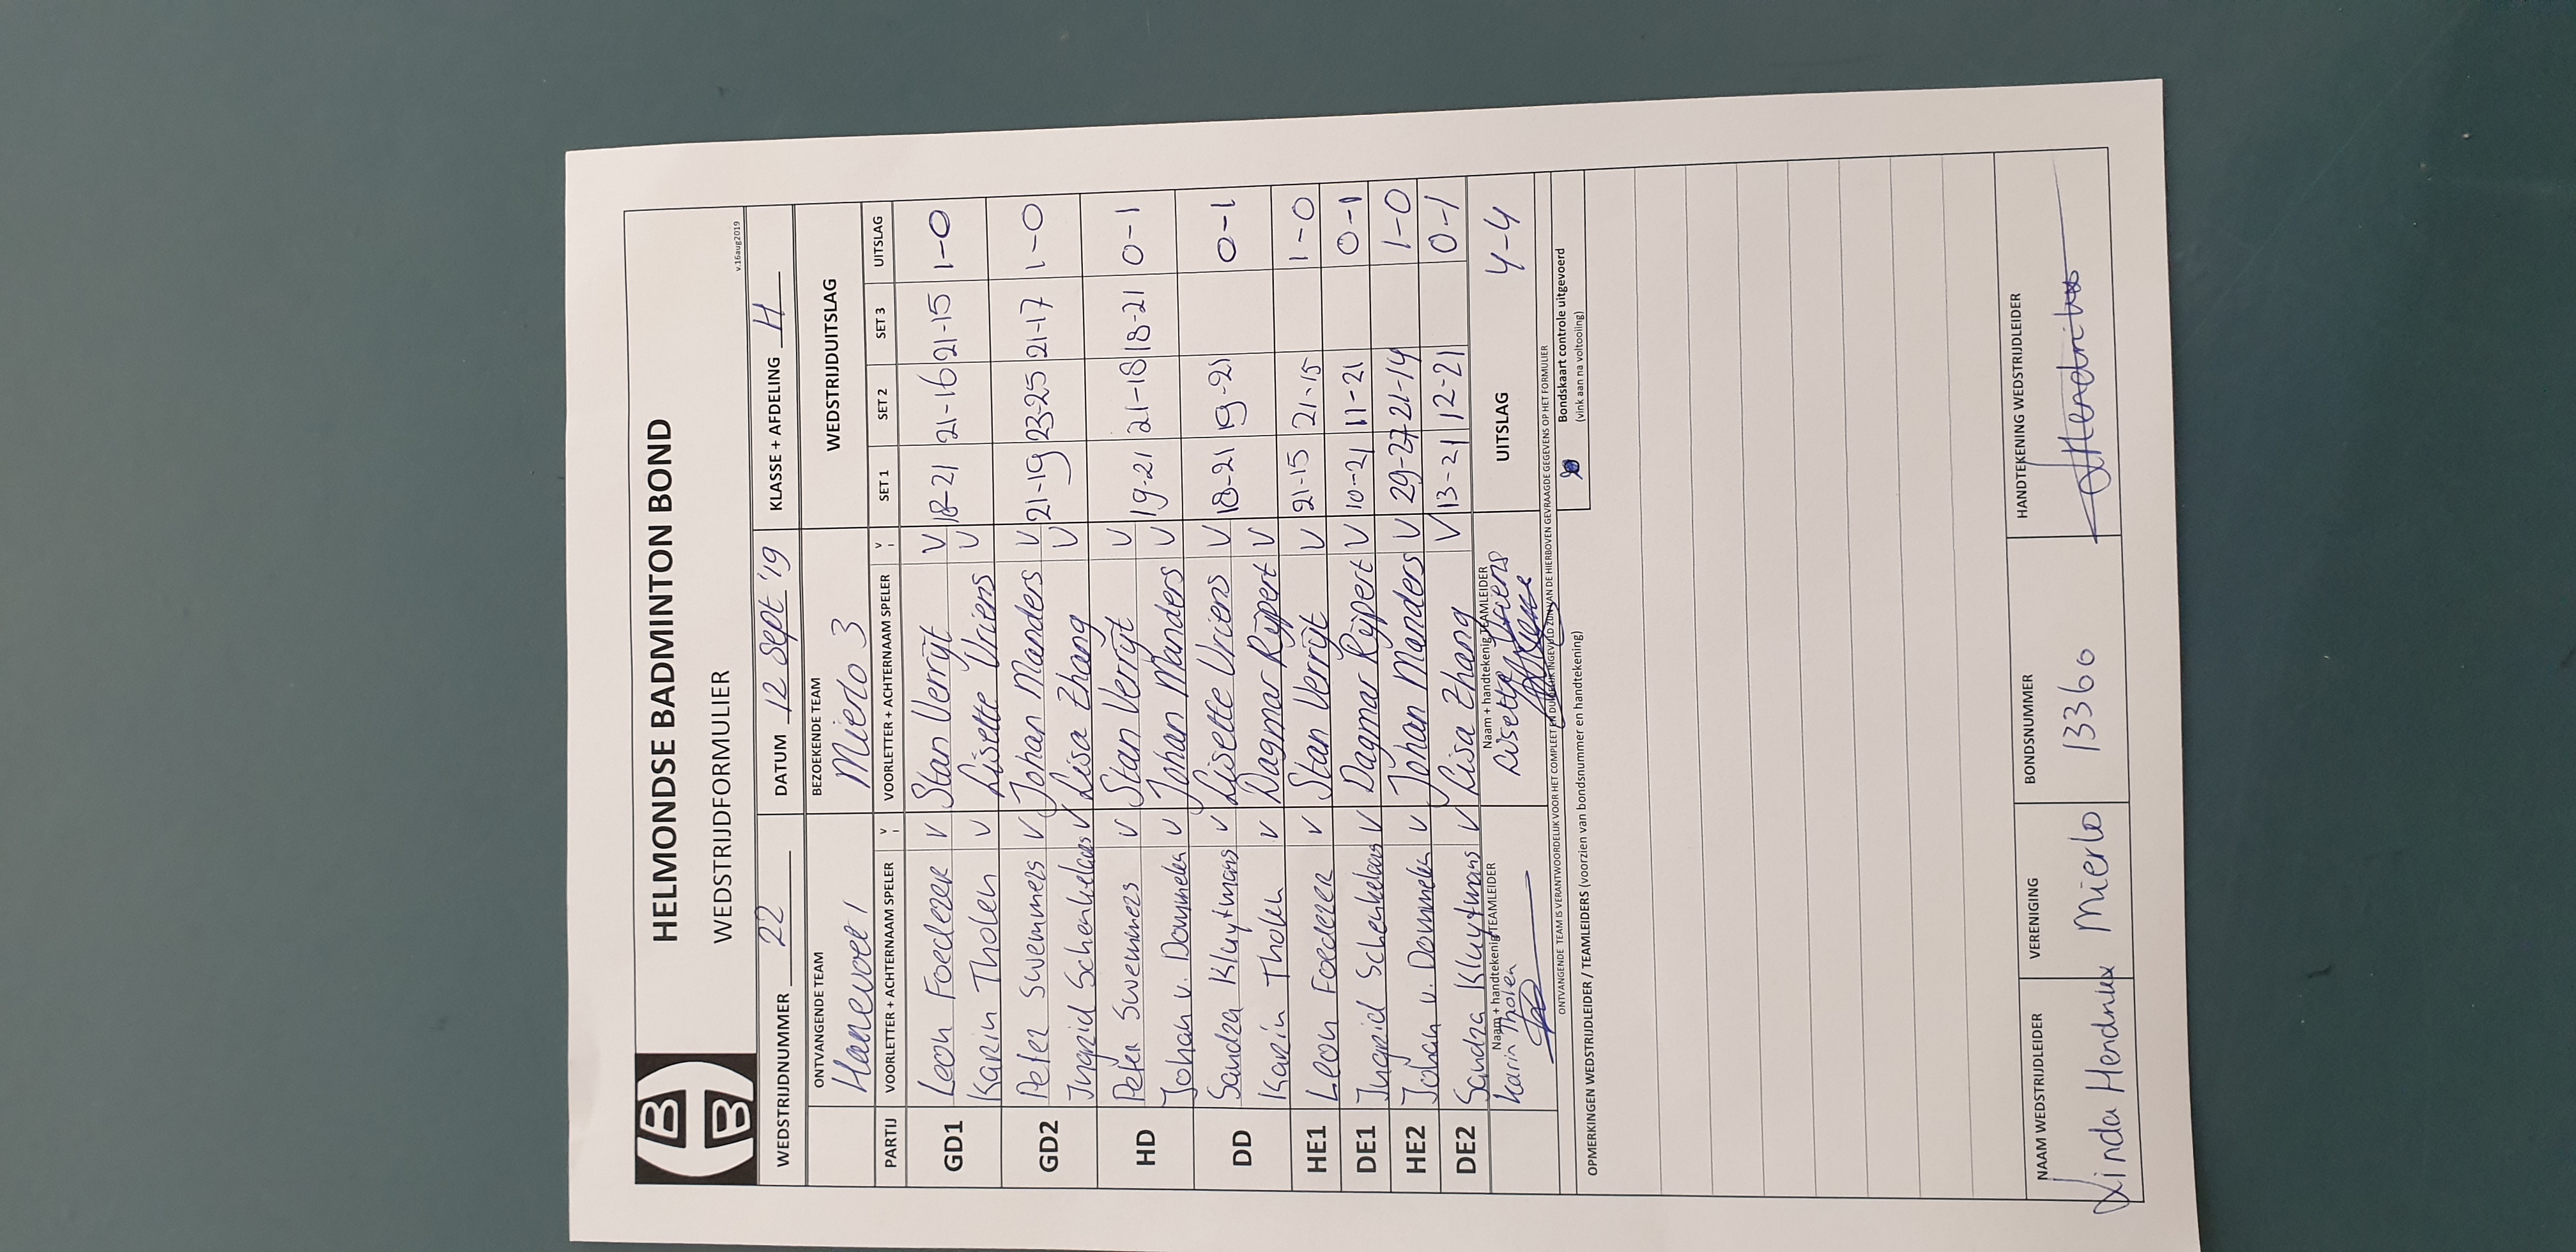 HELMONDSE BADMINTON BOND
WEDSTRIJDFORMULIER
v.16aug2019
WEDSTRIJDNUMMER 22 DATUM 12 Sept '19 KLASSE + AFDELING H
ONTVANGENDE TEAM BEZOEKENDE TEAM WEDSTRIJDUITSLAG
Hanevoet 1 Mierlo 3
PARTIJ VOORLETTER + ACHTERNAAM SPELER V VOORLETTER + ACHTERNAAM SPELER V SET 1 SET 2 SET 3 UITSLAG
GD1 Leon Foederer V Stan Verrijt V 18-21 21-16 21-15 1-0
Karin Tholen V Lisette Vriens V
GD2 Peter Swemmers V Johan Manders V 21-19 23-25 21-17 1-0
Ingrid Schenkelaars V Lisa Zhang V
HD Peter Swemmers V Stan Verrijt V 19-21 21-18 18-21 0-1
Johan v. Dommelen V Johan Manders V
DD Sandra Kluytmans V Lisette Vriens V 18-21 19-21 0-1
Karin Tholen V Dagmar Rijpert V
HE1 Leon Foederer V Stan Verrijt V 21-15 21-15 1-0
DE1 Ingrid Schenkelaars V Dagmar Rijpert V 10-21 11-21 0-1
HE2 Johan v. Dommelen V Johan Manders V 29-27 21-14 1-0
DE2 Sandra Kluytmans V Lisa Zhang V 13-21 12-21 0-1
Naam + handtekenig TEAMLEIDER Naam + handtekenig TEAMLEIDER UITSLAG 4-4
Karin Tholen Lisette Vriens
ONTVANGENDE TEAM IS VERANTWOORDELIJK VOOR HET COMPLEET EN DUIDELIJK INGEVULD ZIJN VAN DE HIERBOVEN GEVRAAGDE GEGEVENS OP HET FORMULIER
Bondskaart controle uitgevoerd
(vink aan na voltooiing)
OPMERKINGEN WEDSTRIJDLEIDER / TEAMLEIDERS (voorzien van bondsnummer en handtekening)
NAAM WEDSTRIJDLEIDER VERENIGING BONDSNUMMER HANDTEKENING WEDSTRIJDLEIDER
Linda Hendrikx Mierlo 13360